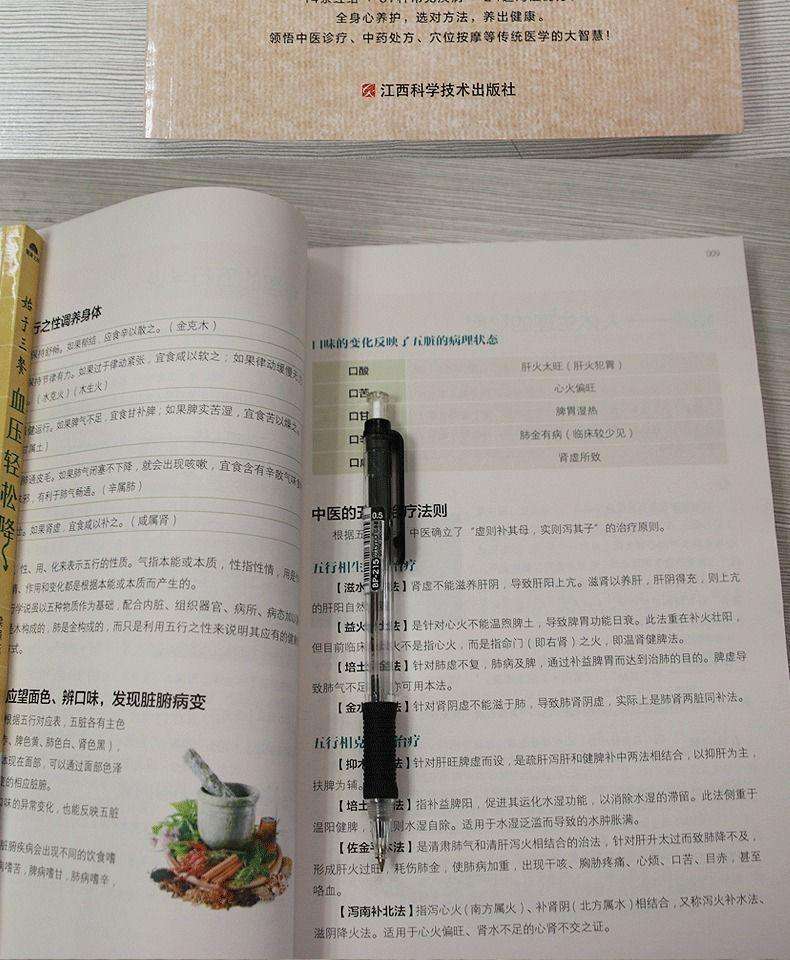 全身心养护，选对方法，养出健康。
领悟中医诊疗、中药处方、穴位按摩等传统医学的大智慧！
江西科学技术出版社
始于三餐 血压轻松降
行之性调养身体
保持舒畅。如果郁结，应食辛以散之。（金克木）
保持节律有力。如果过于律动紧张，宜食咸以软之；如果律动缓慢无
（水克火）（木生火）
健运行。如果脾气不足，宜食甘补脾；如果脾实苦湿，宜食苦以燥之。
属土）
肺通皮毛。如果肺气闭塞不下降，就会出现咳嗽，宜食含有辛散气味
，有利于肺气畅通。（辛属肺）
。如果肾虚，宜食咸以补之。（咸属肾）
、性、用、化来表示五行的性质。气指本能或本质，性指性情，用是
、作用和变化都是根据本能或本质而产生的。
学说虽以五种物质作为基础，配合内脏、组织器官、病所、病态
木构成的，肺是金构成的，而只是利用五行之性来说明其应有的
式。
应望面色、辨口味，发现脏腑病变
根据五行对应表，五脏各有主色
、脾色黄、肺色白、肾色黑），
体现在面部，可以通过面部色泽
的相应脏腑。
味的异常变化，也能反映五脏
脏腑疾病会出现不同的饮食嗜
病嗜苦，脾病嗜甘，肺病嗜辛，
009
口味的变化反映了五脏的病理状态
口酸 肝火太旺（肝火犯胃）
口苦 心火偏旺
口甘 脾胃湿热
口 肺金有病（临床较少见）
口 肾虚所致
中医的五 治疗法则
根据五 中医确立了“虚则补其母，实则泻其子”的治疗原则。
五行相生 治疗
【滋水 法】肾虚不能滋养肝阴，导致肝阳上亢。滋肾以养肝，肝阴得充，则上亢
的肝阳自然
【益火 法】是针对心火不能温煦脾土，导致脾胃功能日衰。此法重在补火壮阳，
但目前临床 火不是指心火，而是指命门（即右肾）之火，即温肾健脾法。
【培土 金法】针对肺虚不复，肺病及脾，通过补益脾胃而达到治肺的目的。脾虚导
致肺气不足 亦可用本法。
【金水 法】针对肾阴虚不能滋于肺，导致肺肾阴虚，实际上是肺肾两脏同补法。
五行相克 治疗
【抑木 法】针对肝旺脾虚而设，是疏肝泻肝和健脾补中两法相结合，以抑肝为主，
扶脾为辅。
【培土 法】指补益脾阳，促进其运化水湿功能，以消除水湿的滞留。此法侧重于
温阳健脾， 则水湿自除。适用于水湿泛滥而导致的水肿胀满。
【佐金平木法】是清肃肺气和清肝泻火相结合的治法，针对肝升太过而致肺降不及，
形成肝火过旺，耗伤肺金，使肺病加重，出现干咳、胸胁疼痛、心烦、口苦、目赤，甚至
咯血。
【泻南补北法】指泻心火（南方属火）、补肾阴（北方属水）相结合，又称泻火补水法、
滋阴降火法。适用于心火偏旺、肾水不足的心肾不交之证。
0.5
BP-215